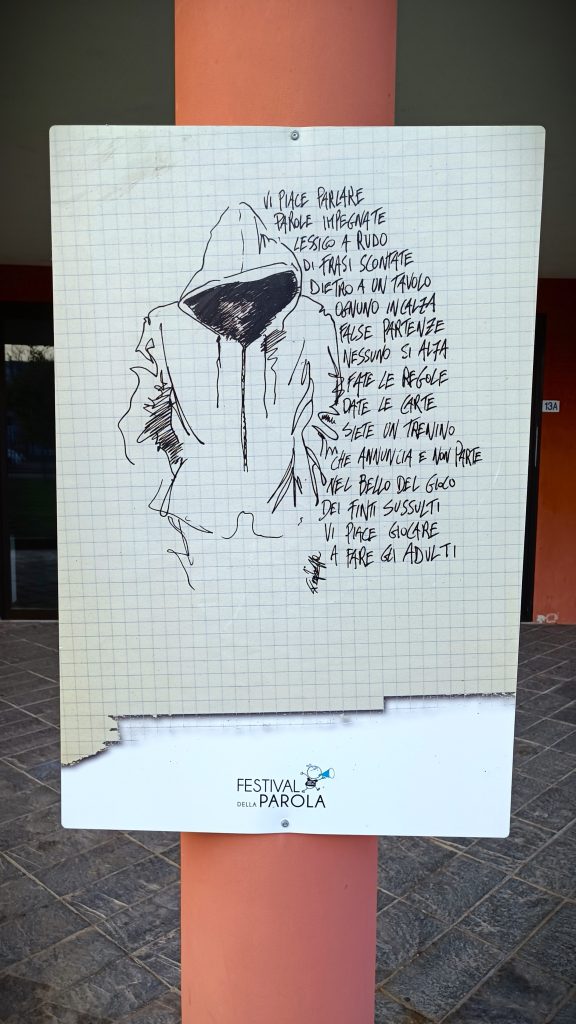 VI PIACE PARLARE
PAROLE IMPEGNATE
LESSICO A RUDO
DI FRASI SCONTATE
DIETRO A UN TAVOLO
OGNUNO INCALZA
FALSE PARTENZE
NESSUNO SI ALZA
FATE LE REGOLE
DATE LE CARTE
SIETE UN TRENINO
CHE ANNUNCIA E NON PARTE
NEL BELLO DEL GIOCO
DEI FINTI SUSSULTI
VI PIACE GIOCARE
A FARE GLI ADULTI
13A
FESTIVAL
DELLA PAROLA